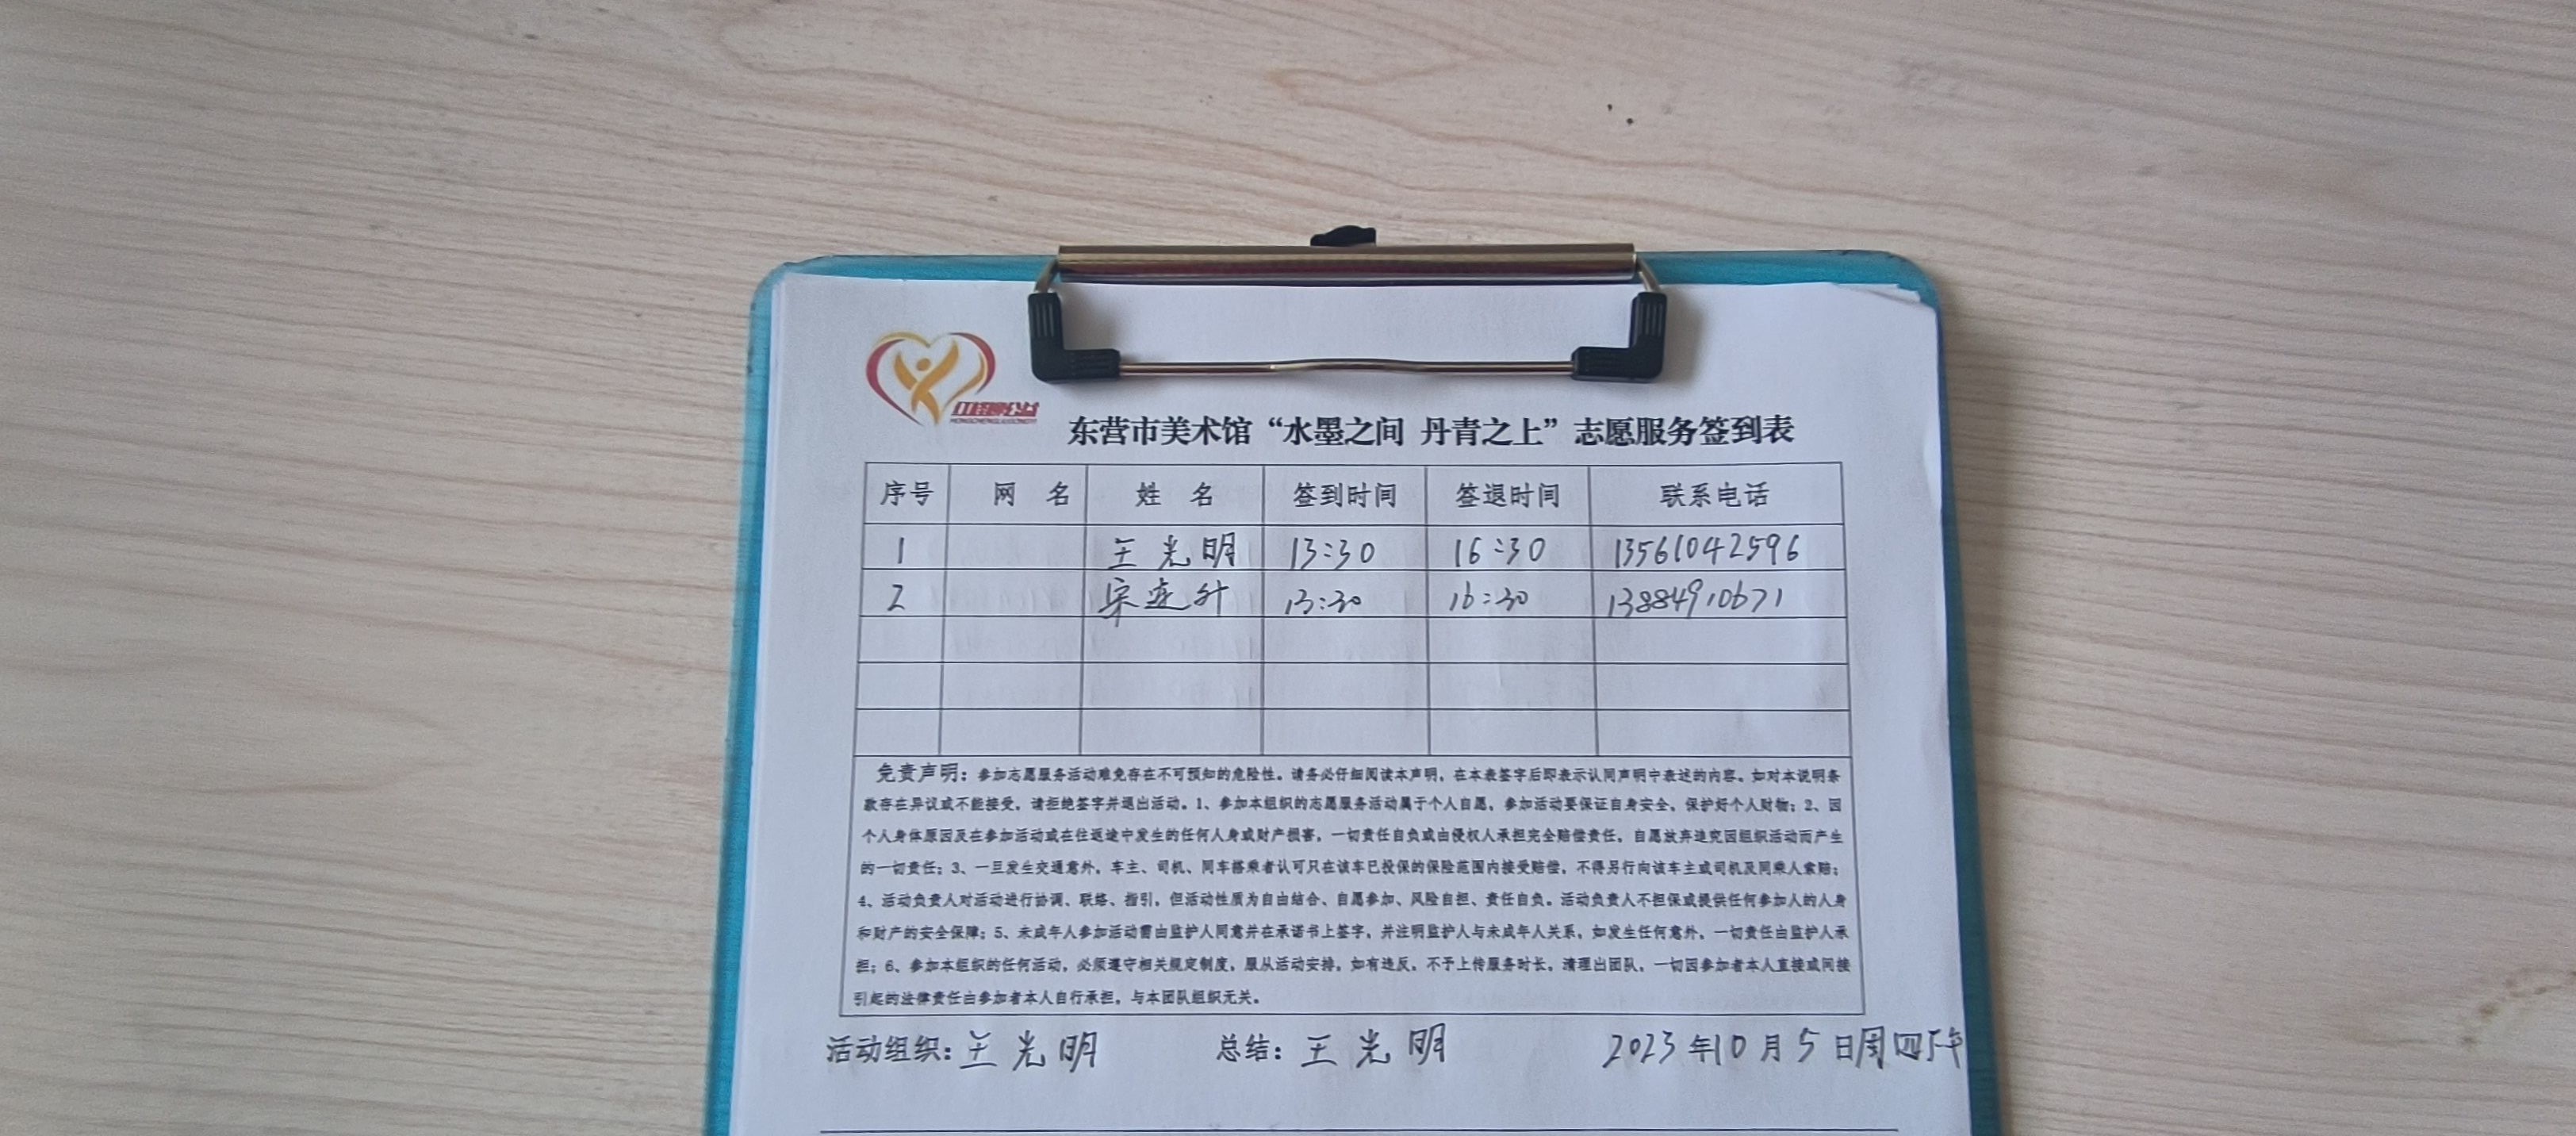 红搭聊公益
东营市美术馆“水墨之间 丹青之上”志愿服务签到表
序号 网 名 姓 名 签到时间 签退时间 联系电话
1 王光明 13:30 16:30 13561042596
2 宋连升 13:30 16:30 13884910671
免责声明：参加志愿服务活动难免存在不可预知的危险性。请务必仔细阅读本声明，在本表签字后即表示认同声明中表述的内容。如对本说明条
款存在异议或不能接受，请拒绝签字并退出活动。1、参加本组织的志愿服务活动属于个人自愿，参加活动要保证自身安全，保护好个人财物；2、因
个人身体原因及在参加活动或在往返途中发生的任何人身或财产损害，一切责任自负或由侵权人承担完全赔偿责任，自愿放弃追究因组织活动而产生
的一切责任；3、一旦发生交通意外，车主、司机、同车搭乘者认可只在该车已投保的保险范围内接受赔偿，不得另行向该车主或司机及同乘人索赔；
4、活动负责人对活动进行协调、联络、指引，但活动性质为自由结合、自愿参加、风险自担、责任自负。活动负责人不担保或提供任何参加人的人身
和财产的安全保障；5、未成年人参加活动需由监护人同意并在承诺书上签字，并注明监护人与未成年人关系，如发生任何意外，一切责任由监护人承
担；6、参加本组织的任何活动，必须遵守相关规定制度，服从活动安排，如有违反，不予上传服务时长，清理出团队，一切因参加者本人直接或间接
引起的法律责任由参加者本人自行承担，与本团队组织无关。
活动组织：王光明 总结：王光明 2023年10月5日周四下午